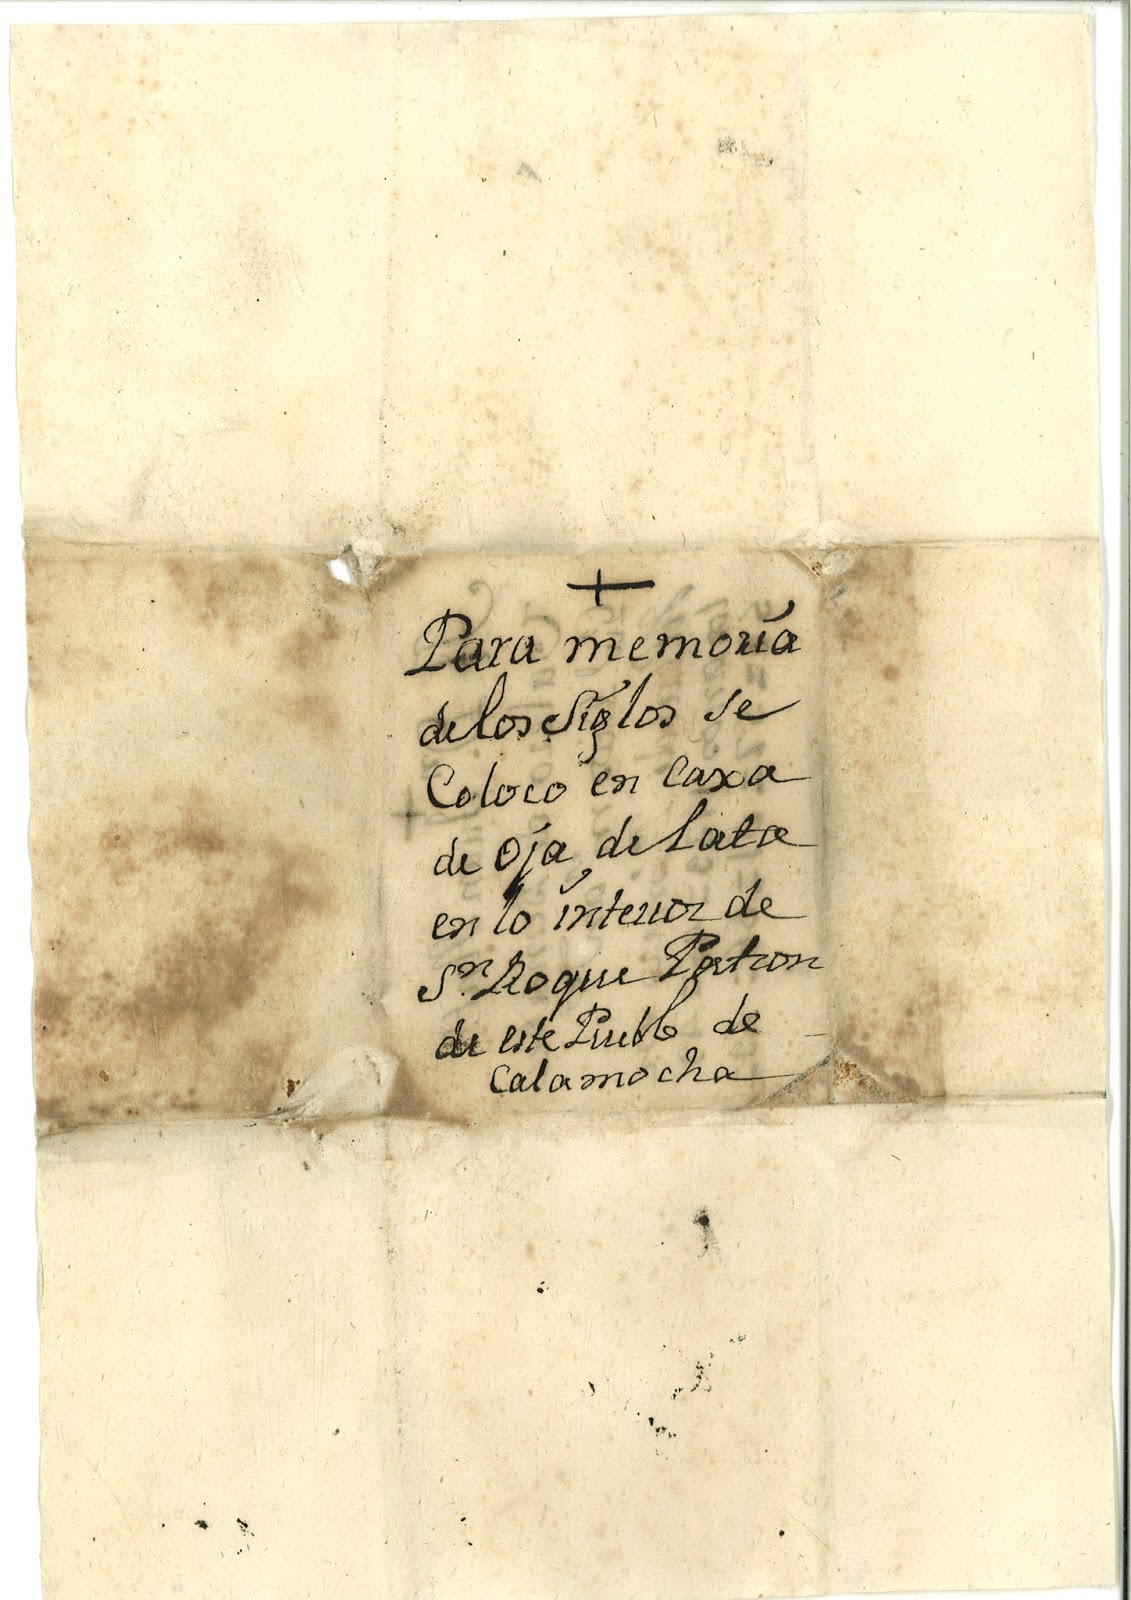 +
Para memoria
de los Siglos se
Coloco en caxa
de oja de lata
en lo interior de
Sn. Roque Patron
de este Pueblo de
Calamocha